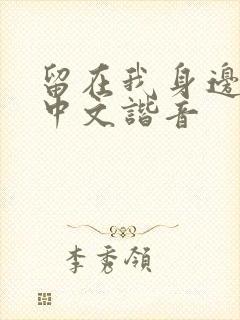 留在我身邊
中文諧音
李秀領